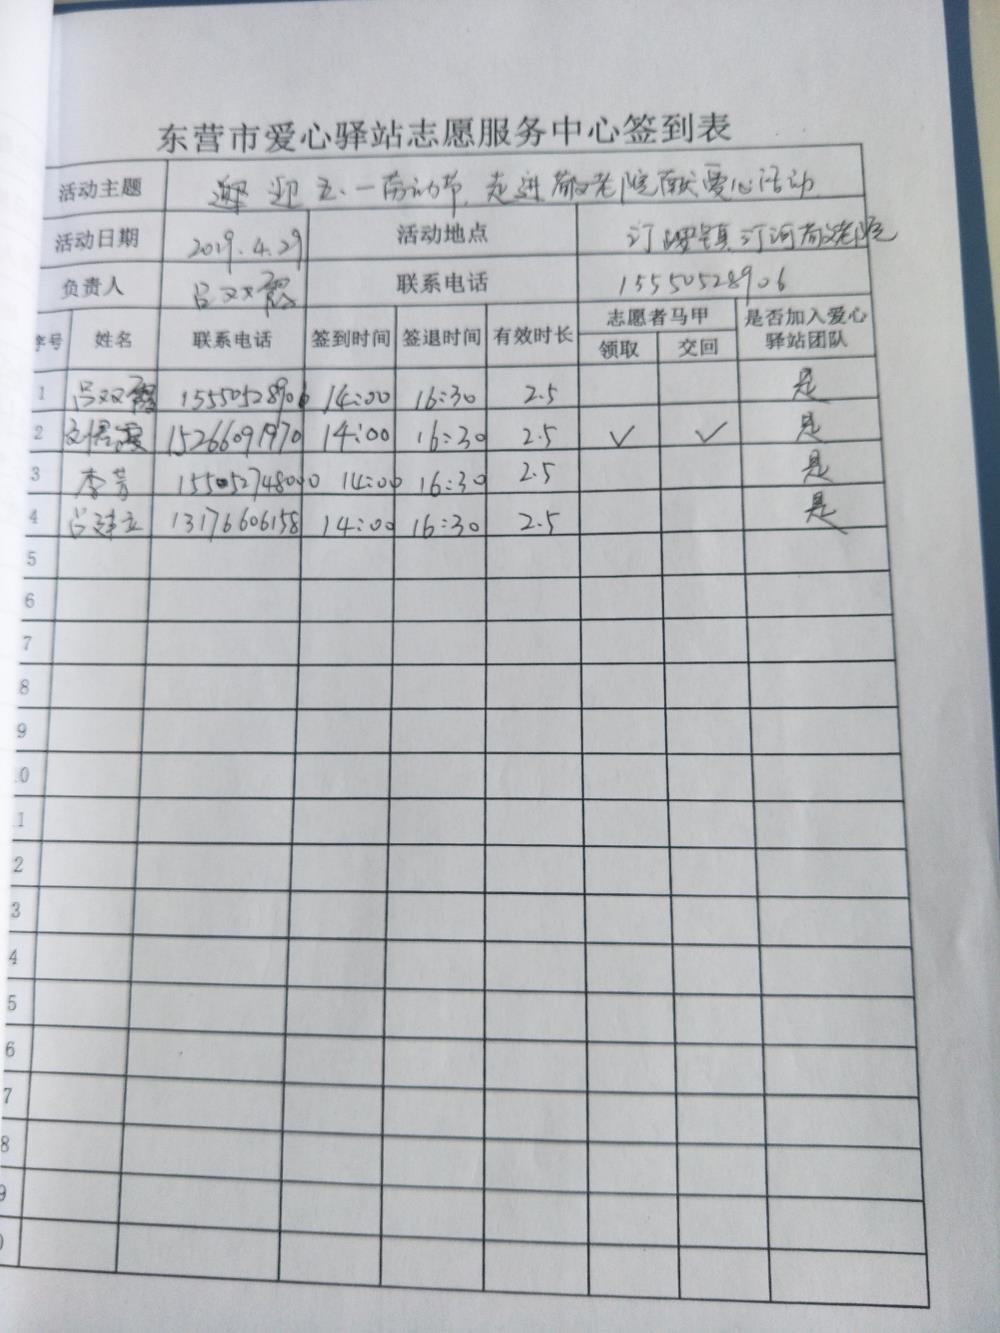 东营市爱心驿站志愿服务中心签到表
活动主题 迎五一劳动节,走进敬老院献爱心活动
活动日期 2019.4.29 活动地点 汀罗镇汀河敬老院
负责人 吕双霞 联系电话 15550528906
序号 姓名 联系电话 签到时间 签退时间 有效时长 志愿者马甲 领取 交回 是否加入爱心驿站团队
1 吕双霞 15550528906 14:00 16:30 2.5 是
2 15266091970 14:00 16:30 2.5 ✓ ✓ 是
3 李芳 15505274800 14:00 16:30 2.5 是
4 吕建立 13176606158 14:00 16:30 2.5 是
5
6
7
8
9
10
1
2
3
4
5
6
7
8
9
0